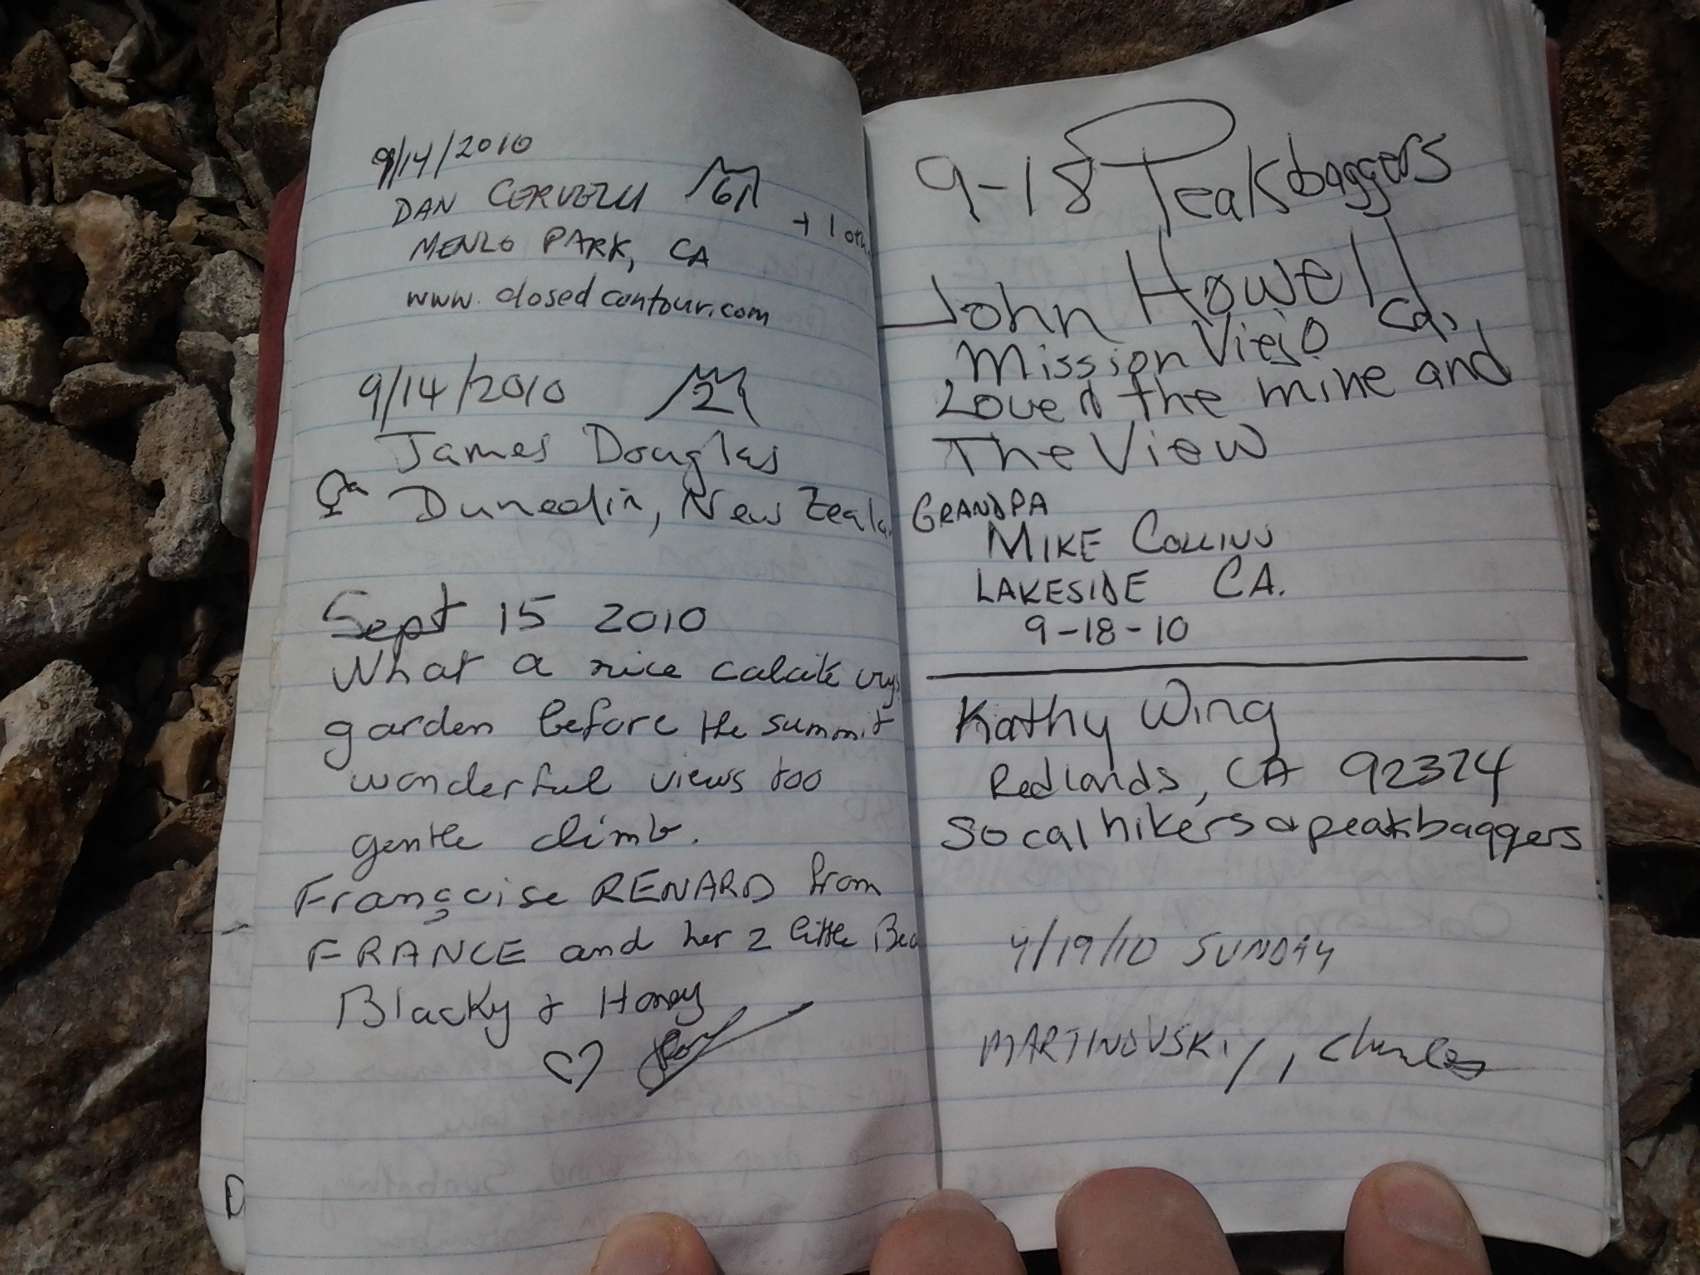 9/14/2010
DAN CERVELLI 61
+ 1 oth
MENLO PARK, CA
www.closedcontour.com
9/14/2010 21
James Douglas
Dunedin, New Zeala
Sept 15 2010
What a nice calcite crys
garden before the summit
wonderful views too
gentle climb.
Françoise RENARD from
FRANCE and her 2 little
Blacky & Honey
D
9-18 Peakbaggers
John Howell
Mission Viejo Ca,
Loved the mine and
The View
GRANDPA
MIKE COLLINS
LAKESIDE CA.
9-18-10
Kathy Wing
Redlands, CA 92374
So cal hikers & peakbaggers
9/19/10 SUNDAY
MARTINOVSKY, Charles